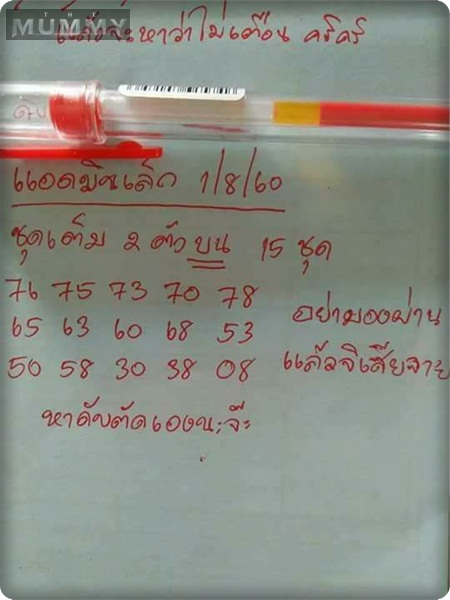 MUMMY
แล้วจะหาว่าไม่เตือน คริคริ
แอดมินเล็ก 1/8/60
ชุดเต็ม 2 ตัว บน 15 ชุด
76 75 73 70 78
65 63 60 68 53
50 58 30 38 08
อย่ามองผ่าน
แล้วจิเสียดาย
หาดับตัดเองนะจ๊ะ